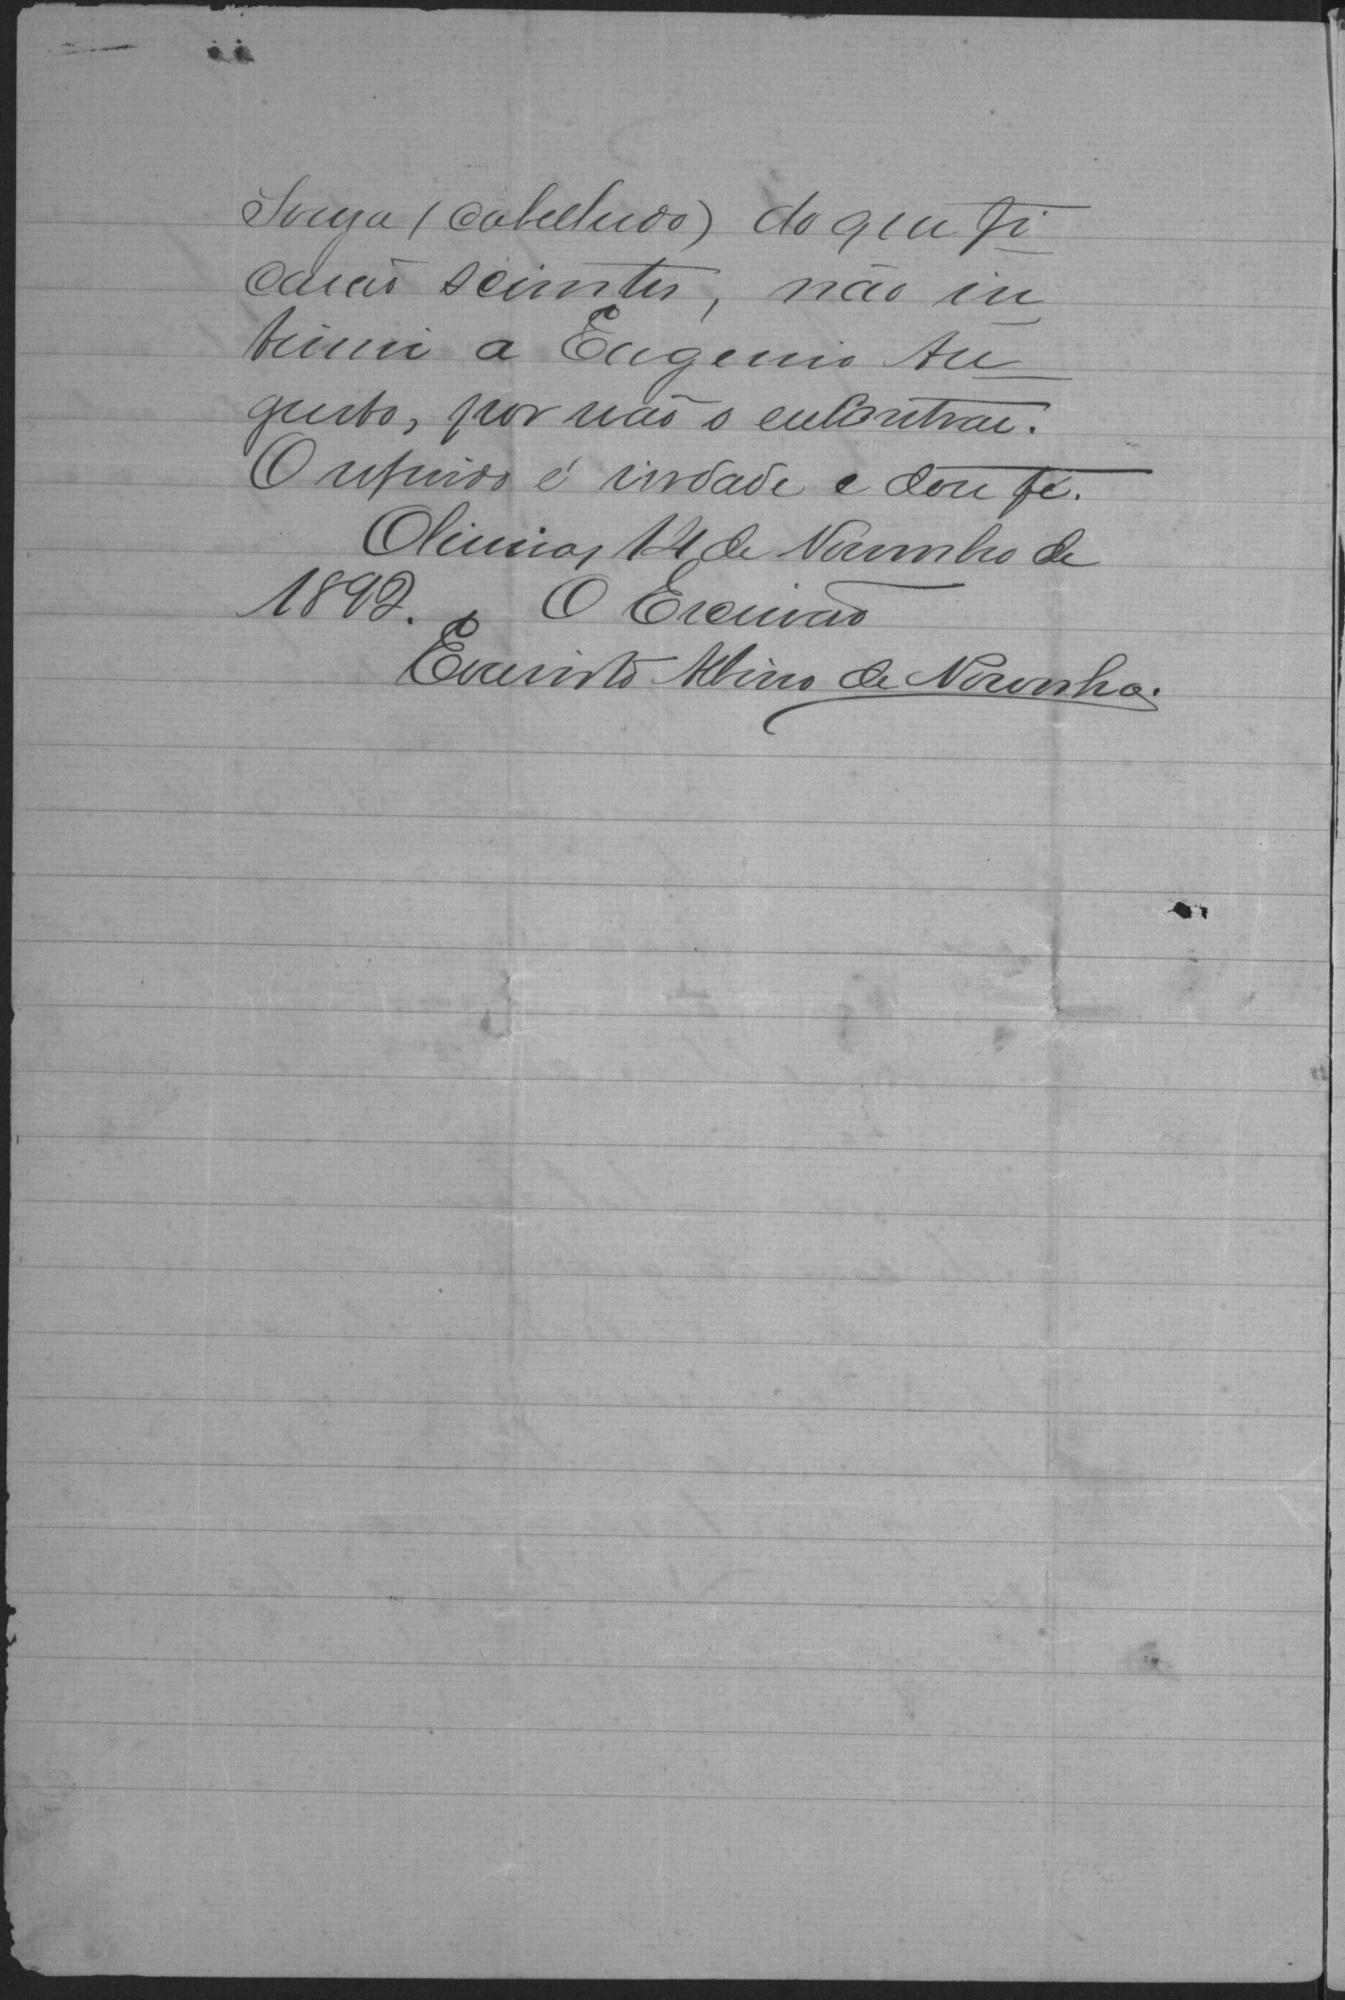 Souza (Cabelludo) do que fi
carão scientes, não in
timei a Eugenio Au
gusto, por não o encontrar.
O referido é verdade e dou fé.
14 de Novembro de
1892. O Escrivão
Evaristo Albino de Noronha.